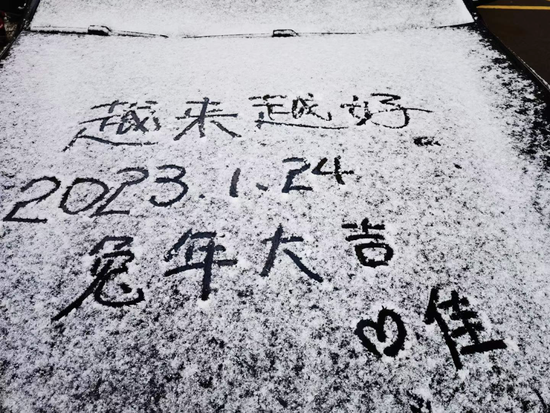 越来越好
2023.1.24
兔年大吉
♡佳